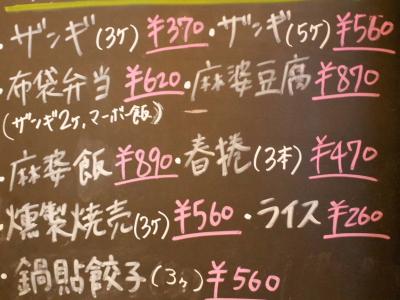 ・ザンギ(3ヶ) ¥370・ザンギ(5ヶ) ¥560
・布袋弁当 ¥620・麻婆豆腐 ¥870
(ザンギ2ヶ,マーボー飯)
・麻婆飯 ¥890・春捲(3本) ¥470
・燻製焼売(3ヶ) ¥560・ライス ¥260
・鍋貼餃子(3ヶ) ¥560